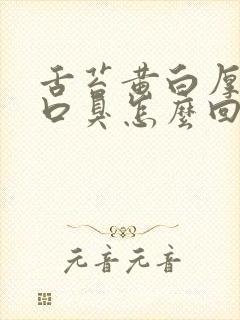 舌苔黄白厚
口臭怎麽回
元音元音